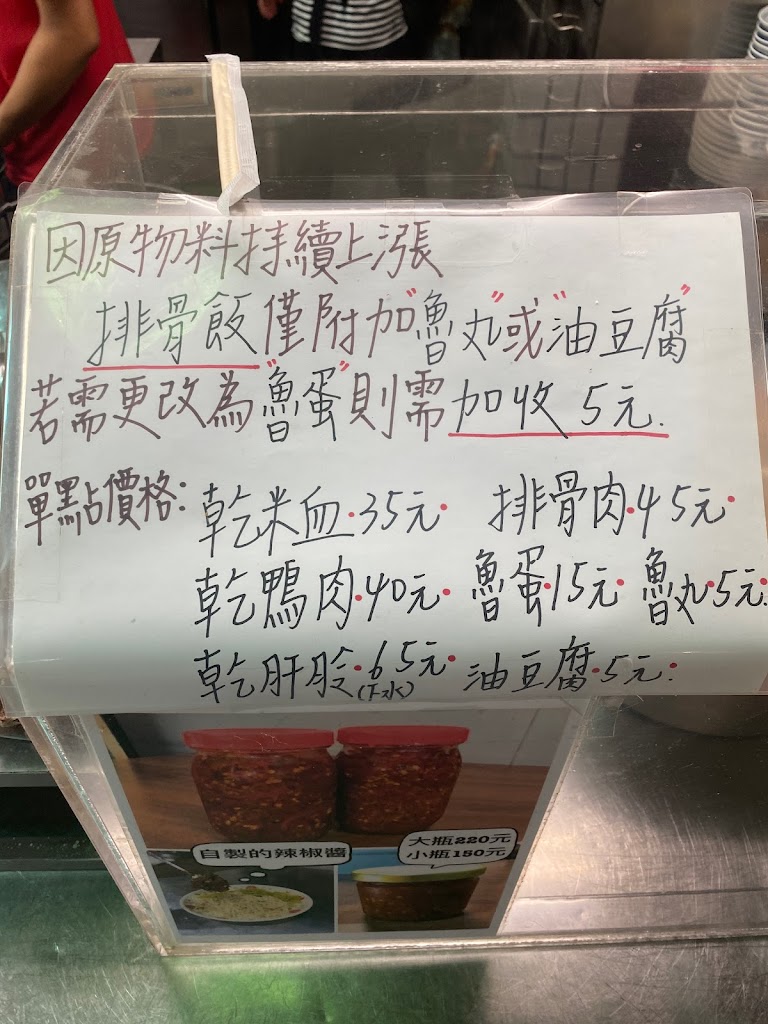 因原物料持續上漲
排骨飯僅附加"魯丸"或"油豆腐"
若需更改為"魯蛋"則需加收5元.
單點價格:乾米血·35元· 排骨肉·45元·
乾鴨肉·40元· 魯蛋·15元· 魯丸·5元·
乾肝胗·65元· 油豆腐·5元·
(下水)
自製的辣椒醬
大瓶220元
小瓶150元